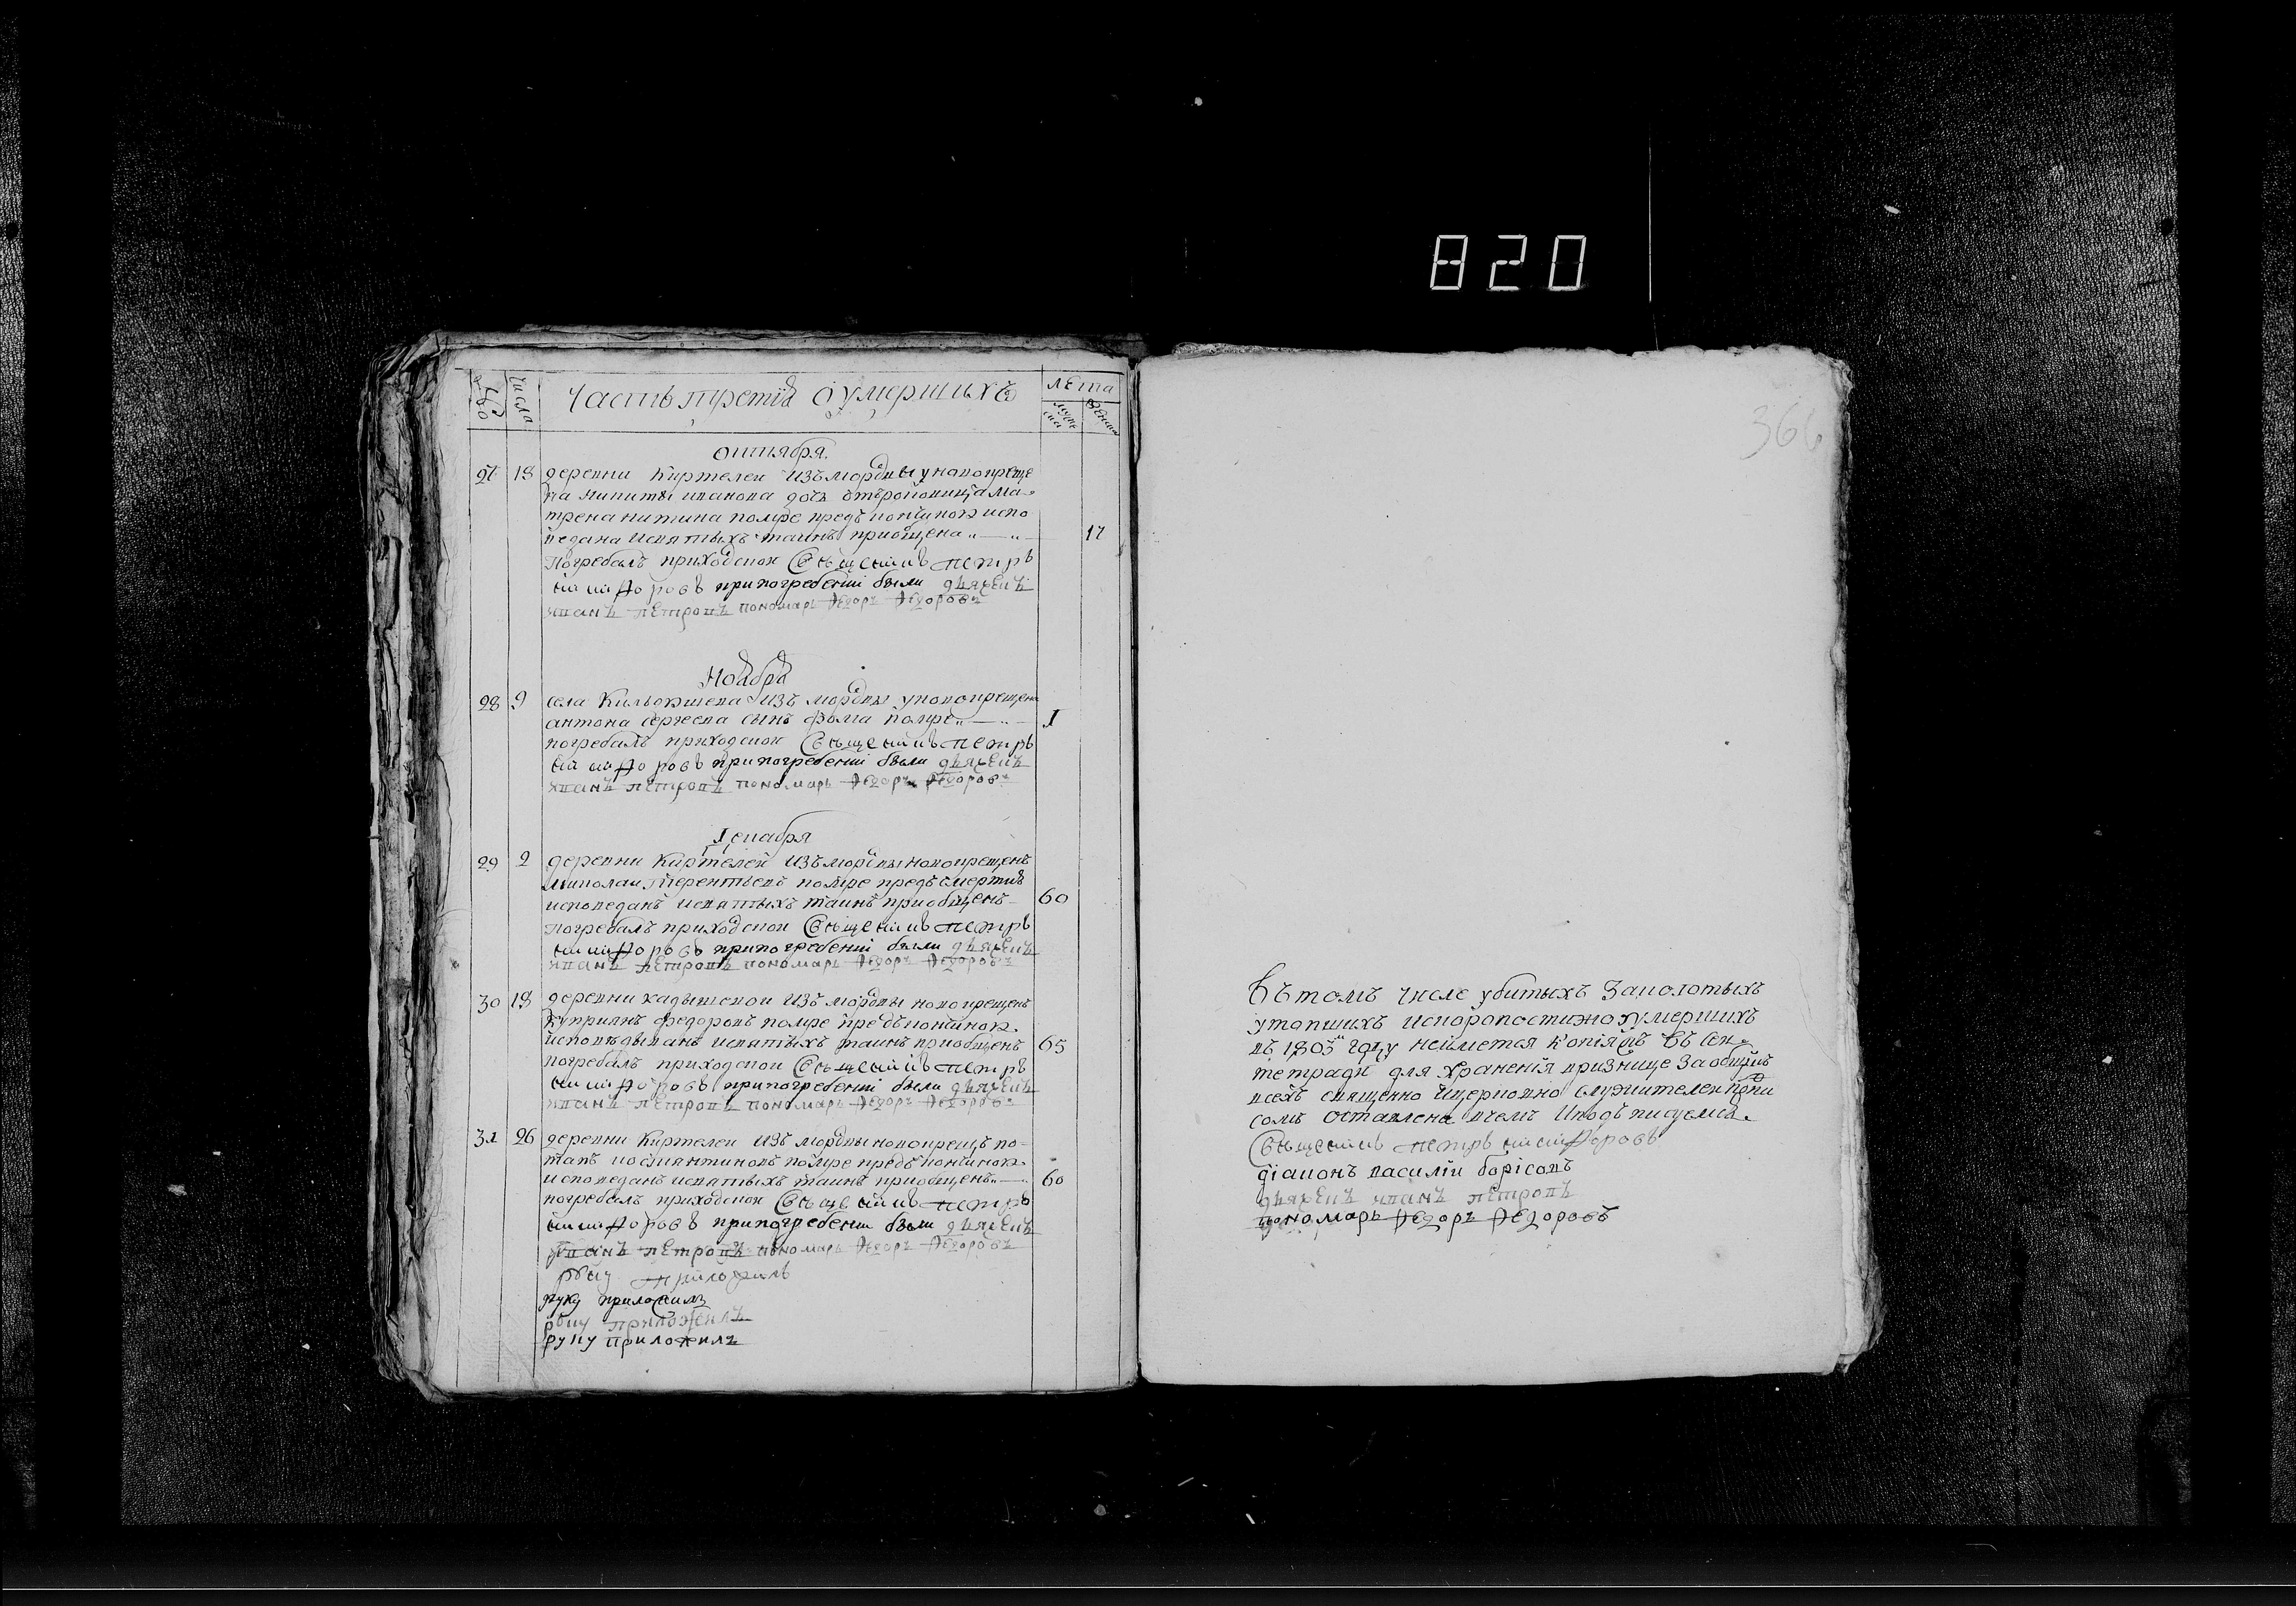 820
366
число
Часть третїя о умершихъ
лета
октября
27 18 деревни Киртелеи изъ мордвы у новокреще
на никиты иванова дочь
трена никитина помре предъ кончиною испо
ведана исвятыхъ таинъ приобщена 17
погребалъ приходскои Священникъ петръ
никифоровъ припогребенїи были дьячекъ
иванъ петровъ пономарь Федоръ Федоровъ
Ноября
28 9 села изъ мордвы уновокрещена
антона сергеева сынъ фома помре 1
погребалъ приходскои Священникъ петръ
никифоровъ припогребенїи были дьячекъ
иванъ петровъ пономарь Федоръ Федоровъ
Декабря
29 2 деревни Киртелеи изъ мордвы новокрещенъ
николаи терентьевъ помре предъ смертию
исповеданъ исвятыхъ таинъ приобщенъ 60
погребалъ приходскои Священникъ петръ
никифоровъ припогребенїи были дьячекъ
иванъ петровъ пономарь Федоръ Федоровъ
30 18 деревни изъ мордвы новокрещенъ
куприянъ федоровъ помре предъ кончиною
исповѣдыванъ исвятыхъ таинъ приобщенъ 65
погребалъ приходскои Священникъ петръ
никифоровъ припогребенїи были дьячекъ
иванъ петровъ пономарь Федоръ Федоровъ
31 26 деревни Киртелеи изъ мордвы новокрещъ по-
тапъ костянтиновъ помре предъ кончиною
исповеданъ исвятыхъ таинъ приобщенъ 60
погребалъ приходскои Священникъ петръ
никифоровъ припогребенїи были дьячекъ
иванъ петровъ пономарь Федоръ Федоровъ
руку приложилъ
руку приложилъ
руку приложилъ
руку приложилъ
Вътомъ числе убитыхъ заколотыхъ
утопшихъ искоропостижно умершихъ
въ 1803м году неимется копїя съ
тетради для храненїя вризнице заобщимъ
всехъ священно ицерковно служителеи
сомъ оставлена вчемъ иподъписуемся
Священникъ петръ никифоровъ
дїаконъ василїи борїсовъ
дьячекъ иванъ петровъ
пономарь Федоръ Федоровъ